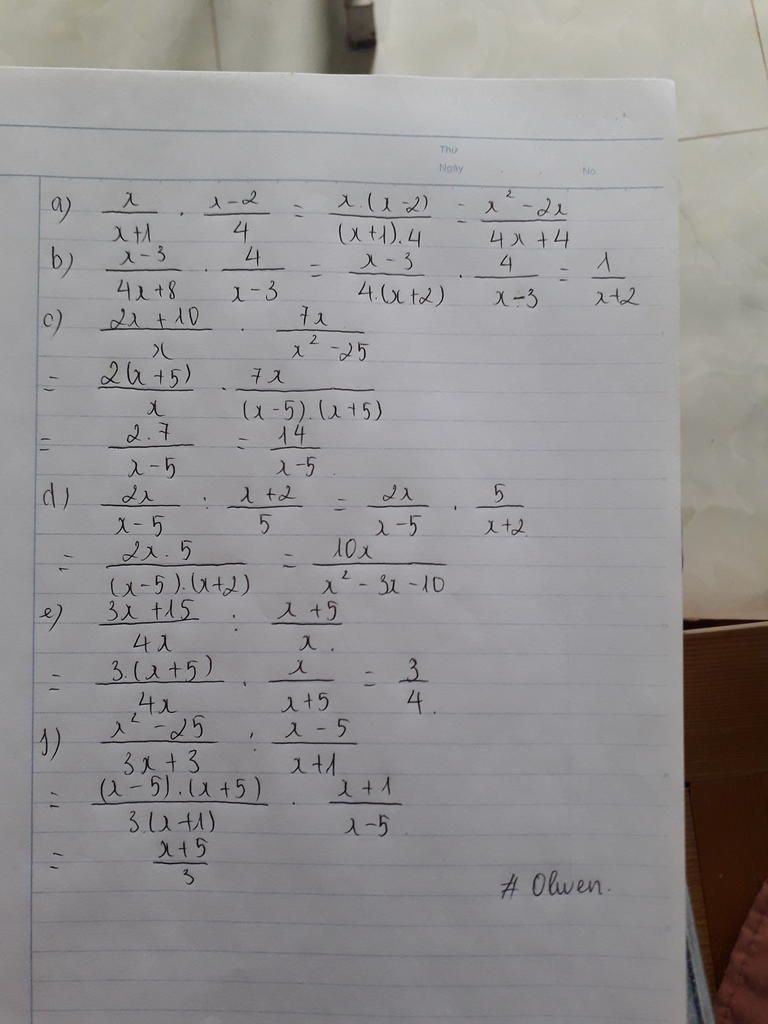 Thứ
Ngày . . No.
a) x/(x+1) . (x-2)/4 = x.(x-2)/((x+1).4) = (x² - 2x)/(4x+4)
b) (x-3)/(4x+8) . 4/(x-3) = (x-3)/(4.(x+2)) . 4/(x-3) = 1/(x+2)
c) (2x+10)/x . 7x/(x² - 25)
= 2(x+5)/x . 7x/((x-5).(x+5))
= 2.7/(x-5) = 14/(x-5)
d) 2x/(x-5) : (x+2)/5 = 2x/(x-5) . 5/(x+2)
= 2x.5/((x-5).(x+2)) = 10x/(x² - 3x - 10)
e) (3x+15)/4x : (x+5)/x.
= 3.(x+5)/4x . x/(x+5) = 3/4.
f) (x² - 25)/(3x+3) : (x-5)/(x+1)
= (x-5).(x+5)/(3.(x+1)) . (x+1)/(x-5)
= (x+5)/3
# Olwen.